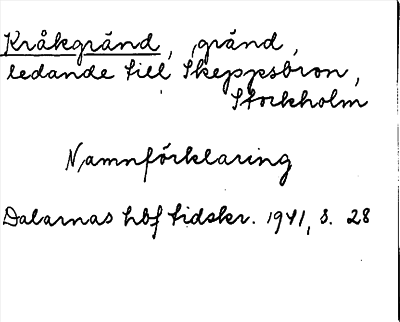 Kråkgränd, gränd,
ledande till Skeppsbron,
Stockholm
Namnförklaring
Dalarnas hbf tidskr. 1941, s. 28